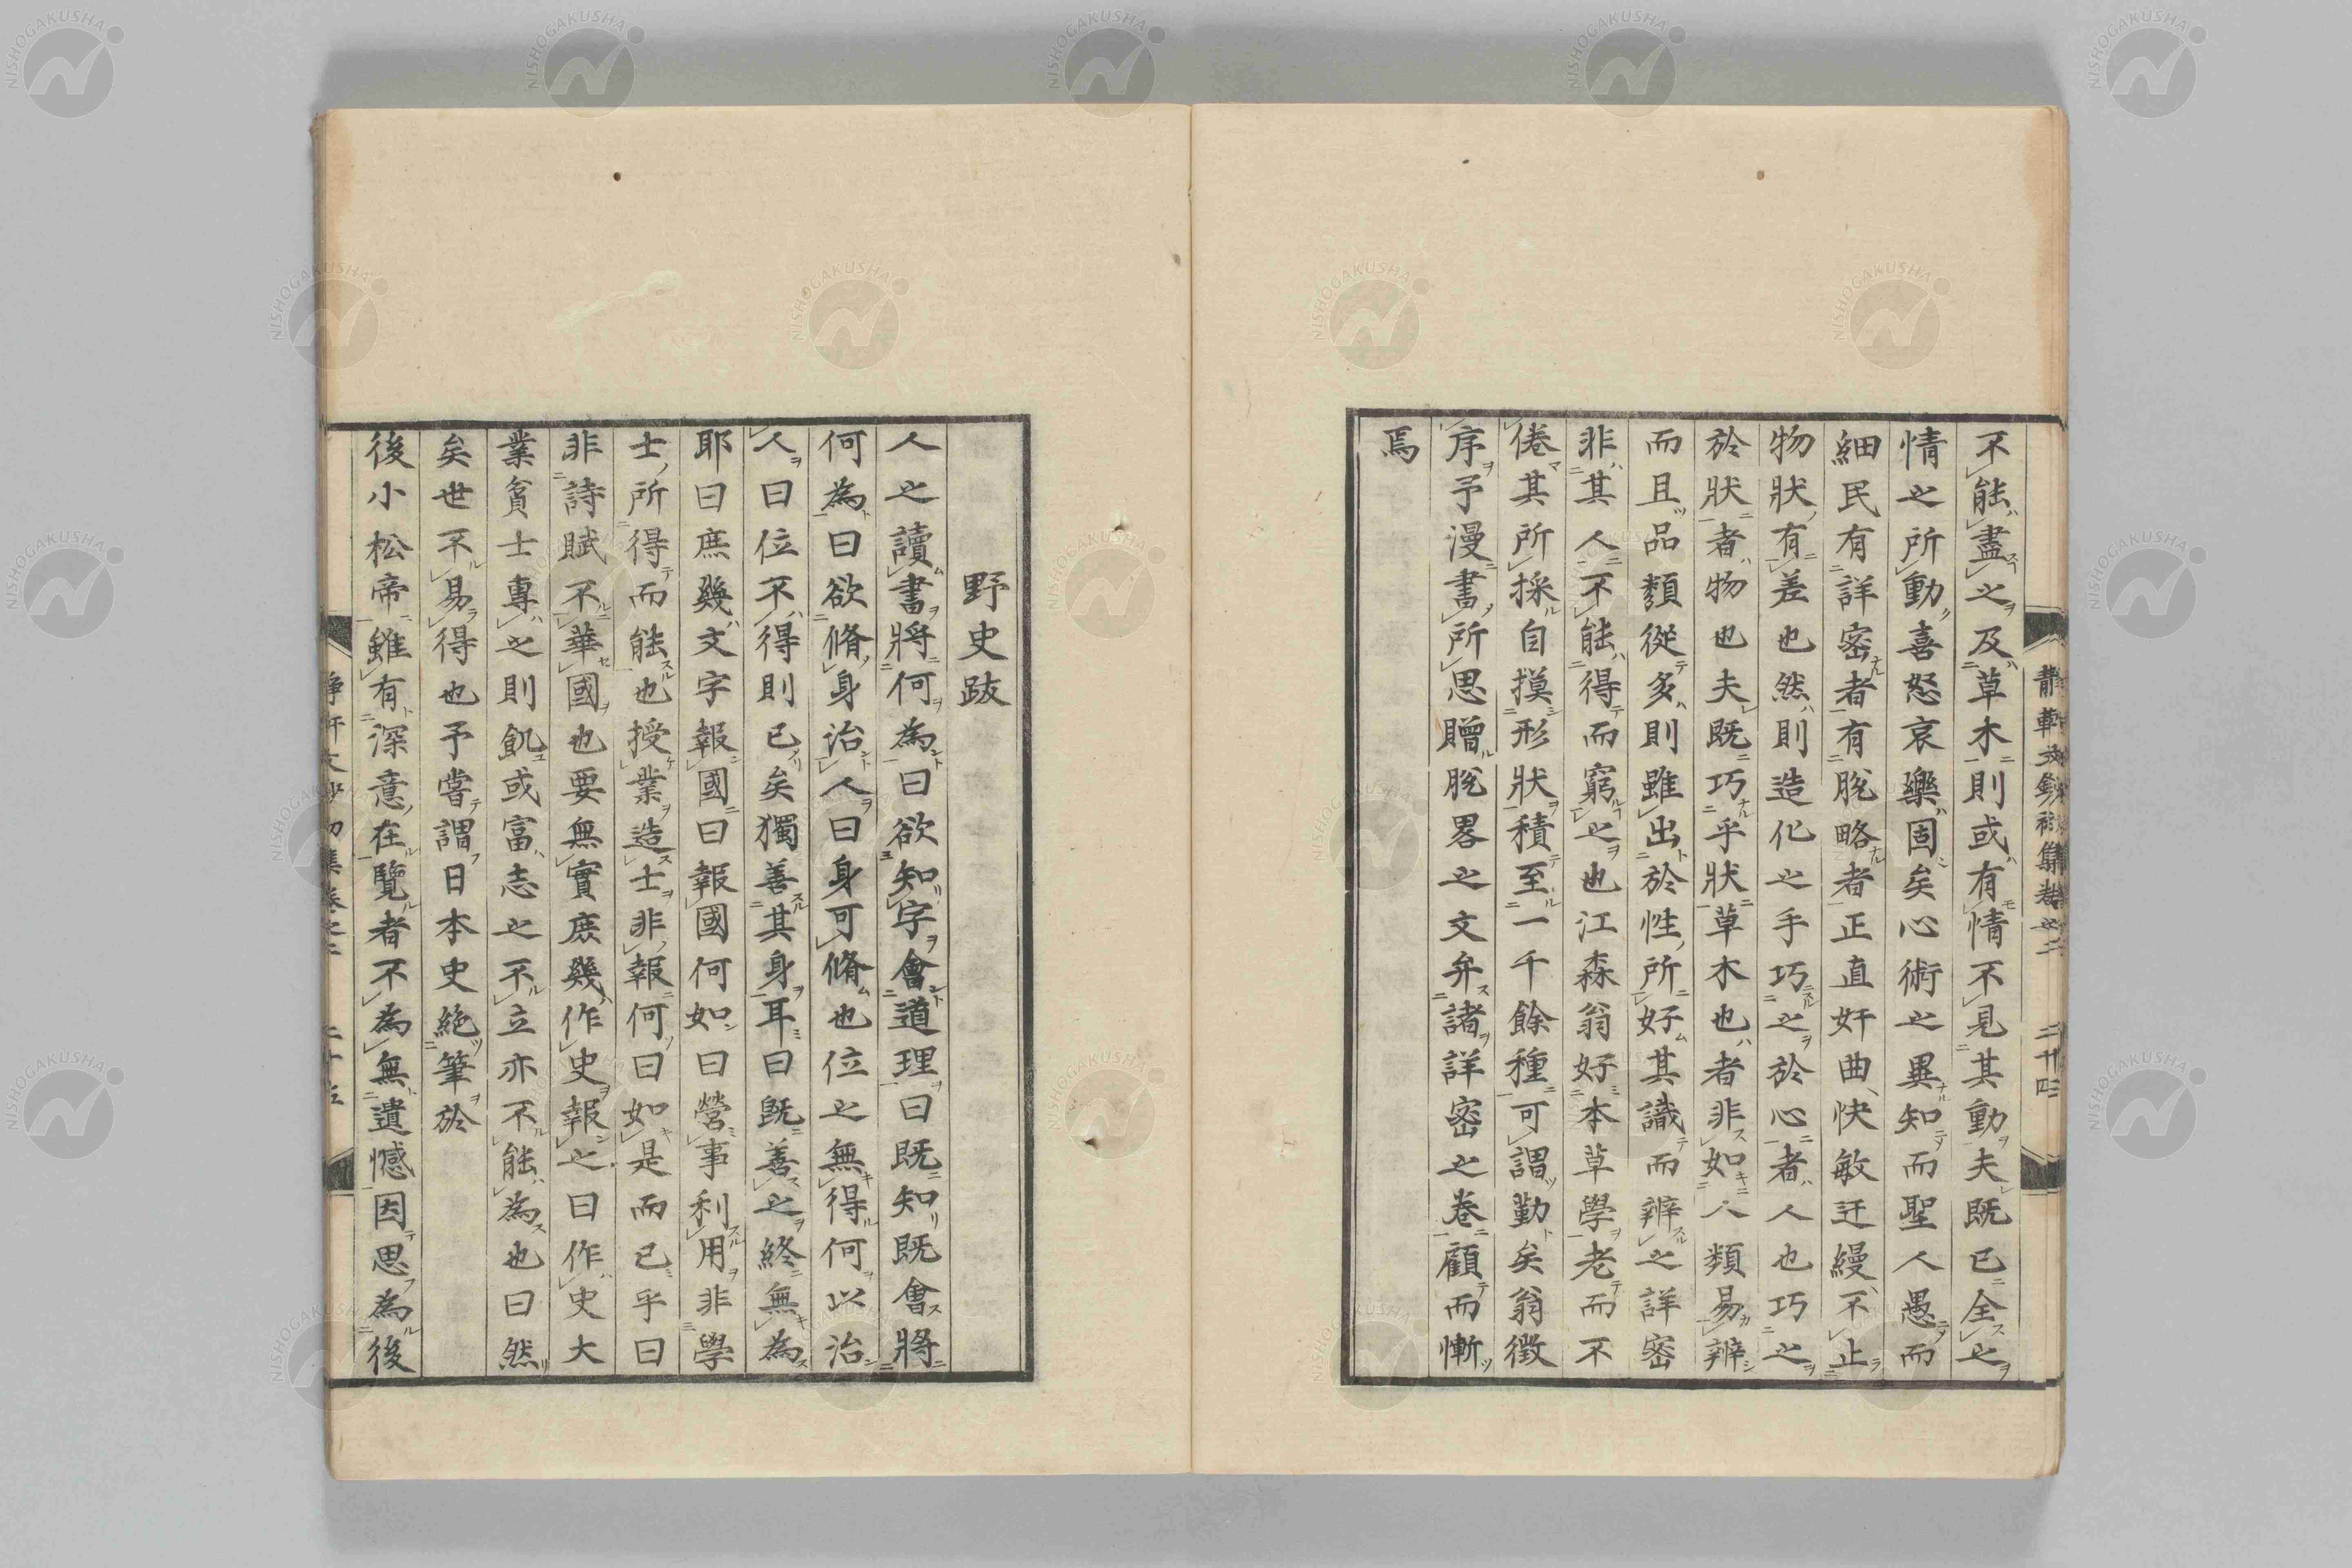 不能盡之及草木則或有情不見其動夫既已全之
情之所動喜怒哀樂固矣心術之異知而聖人愚而
細民有詳密者有脫略者正直奸曲快敏迂緩不止
物狀有差也然則造化之手巧之於心者人也巧之
於狀者物也夫既巧乎狀草木也者非如人類易辨
而且品類從多則雖出於性所好其識而辨之詳密
非其人不能得而窮之也江森翁好本草學老而不
倦其所採自摸形狀積至一千餘種可謂勤矣翁徵
序予漫書所思贈脫畧之文弁諸詳密之卷顧而慚
焉
野史跋
人之讀書將何為曰欲知字會道理曰既知既會將
何為曰欲脩身治人曰身可脩也位之無得何以治
人曰位不得則已矣獨善其身耳曰既善之終無為
耶曰庶幾文字報國曰報國何如曰營事利用非學
士所得而能也授業造士非報何曰如是而已乎曰
非詩賦不華國也要無實庶幾作史報之曰作史大
業貧士專之則飢或富志之不立亦不能為也曰然
矣世不易得也予嘗謂日本史絶筆於
後小松帝雖有深意在覽者不為無遺憾因思為後
NISHOGAKUSHA